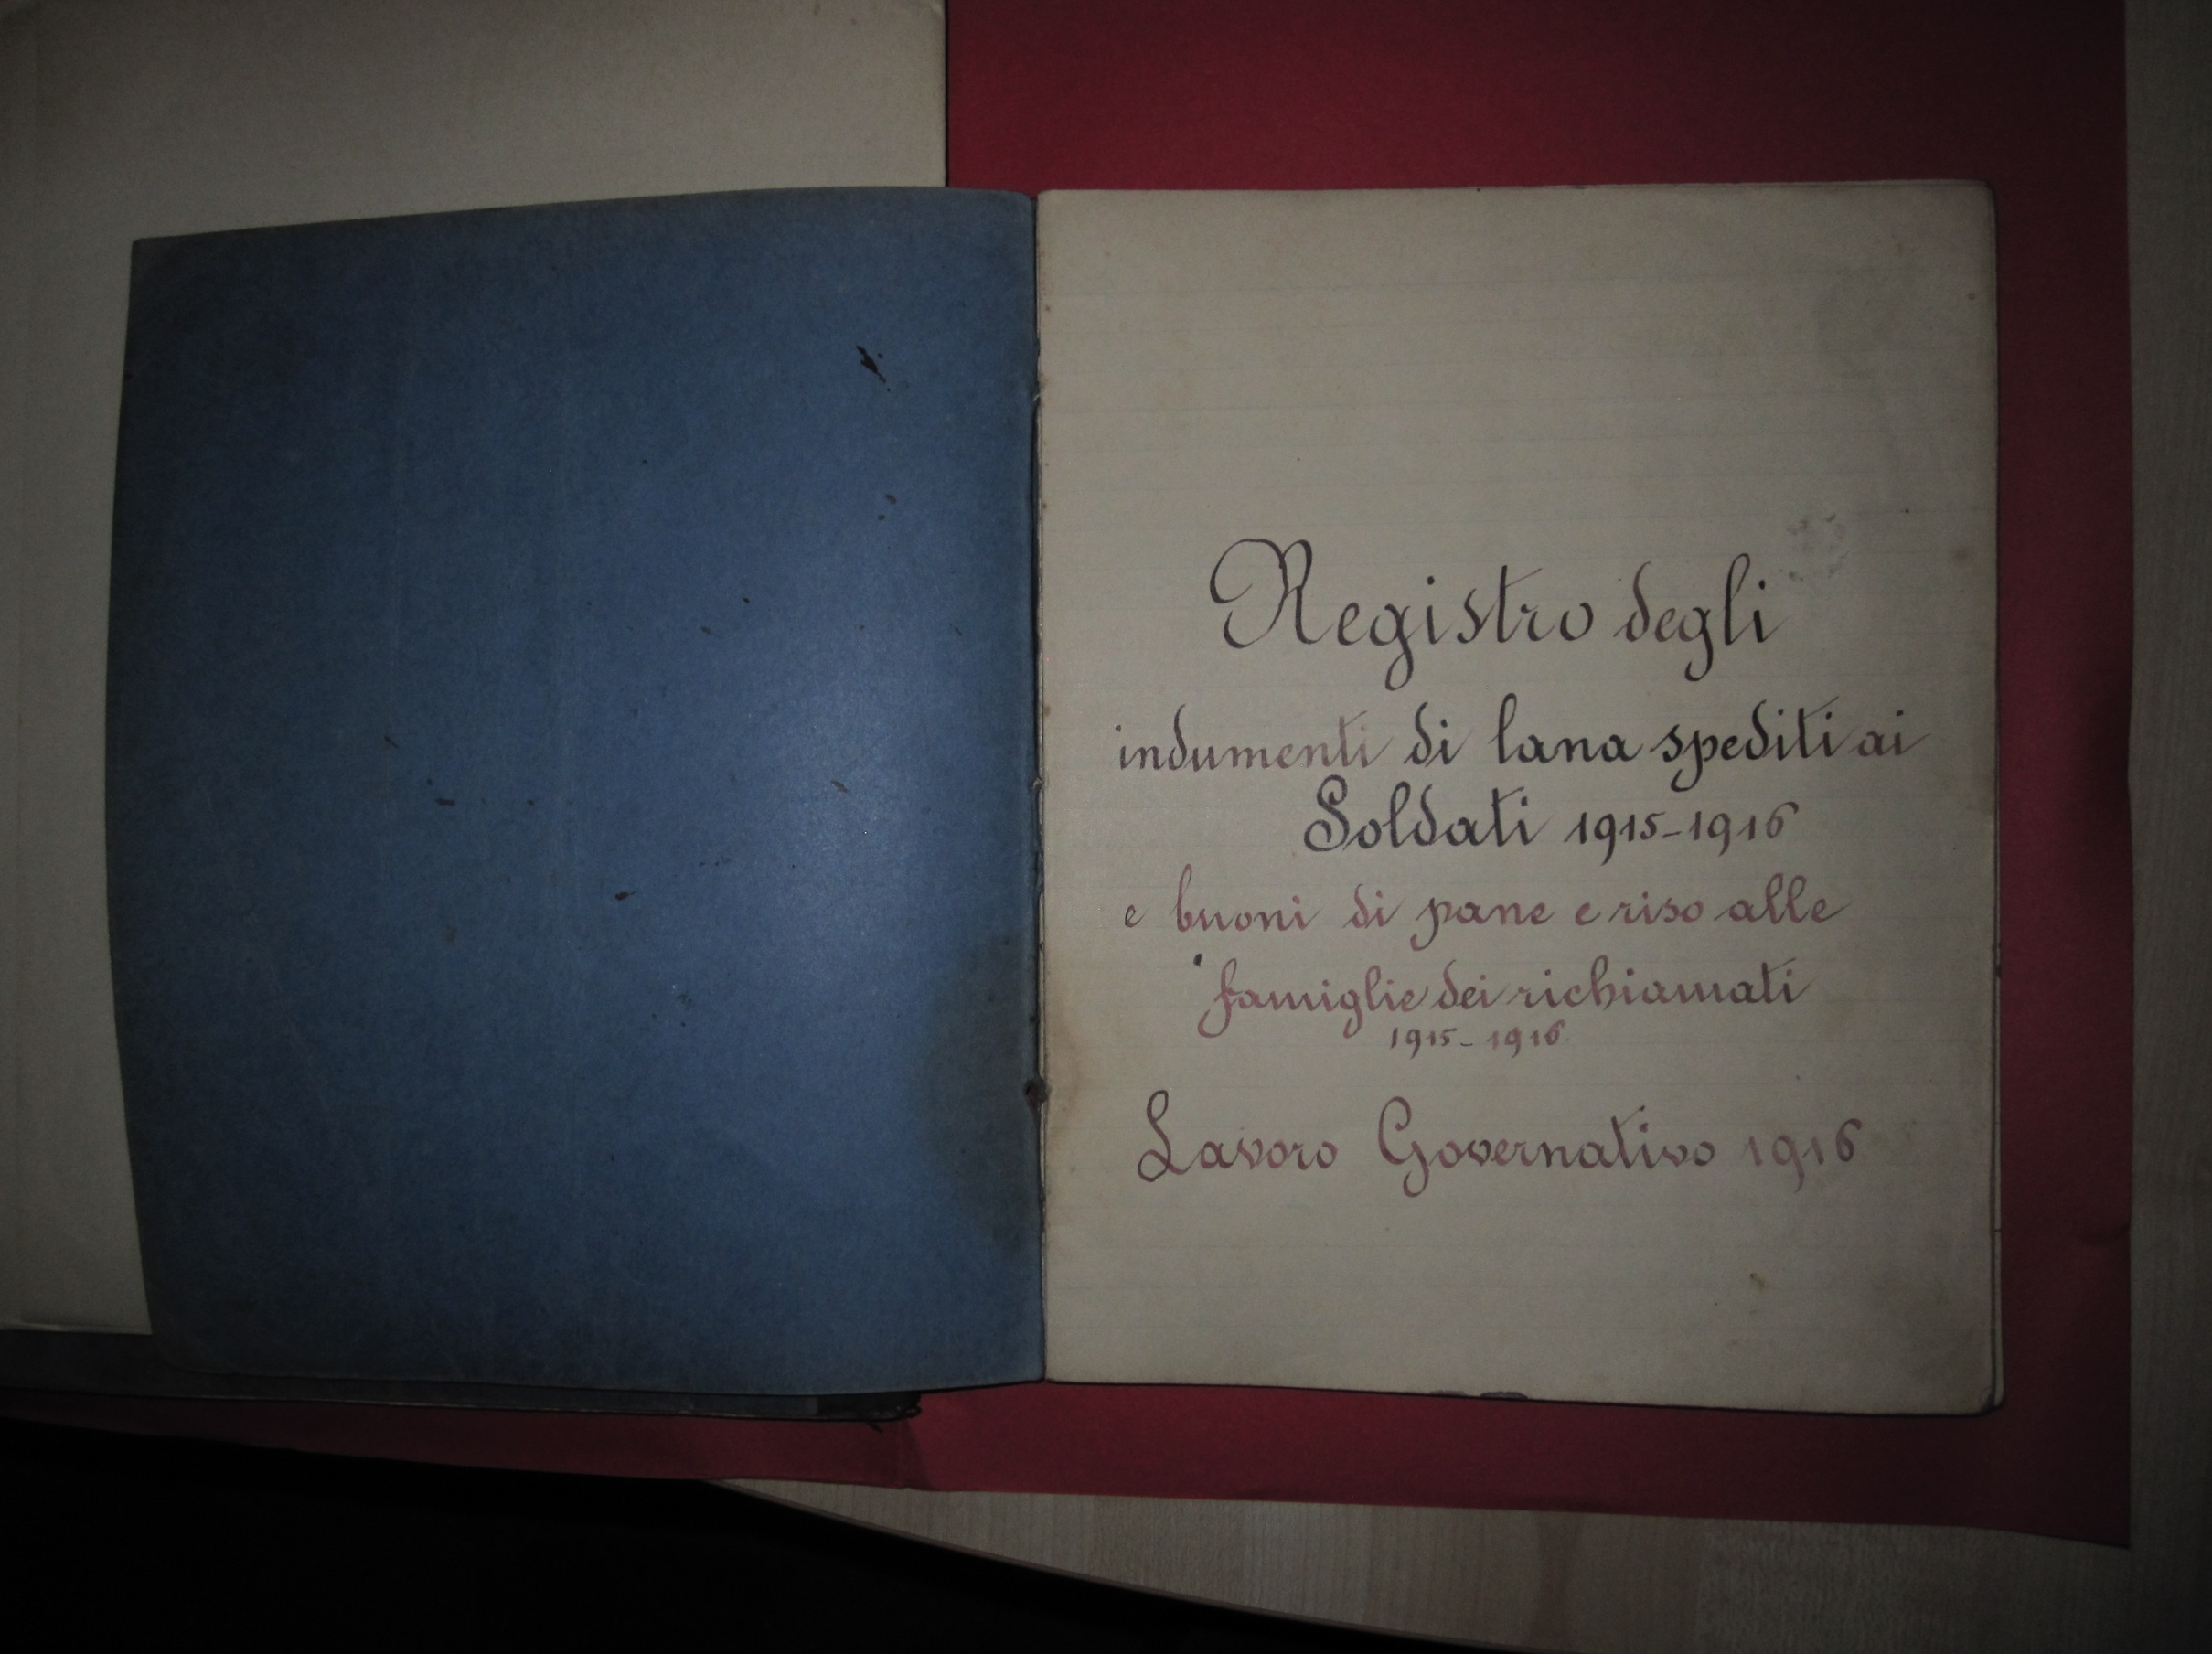 Registro degli
indumenti di lana spediti ai
Soldati 1915-1916
e buoni di pane e riso alle
famiglie dei richiamati
1915-1916
Lavoro Governativo 1916